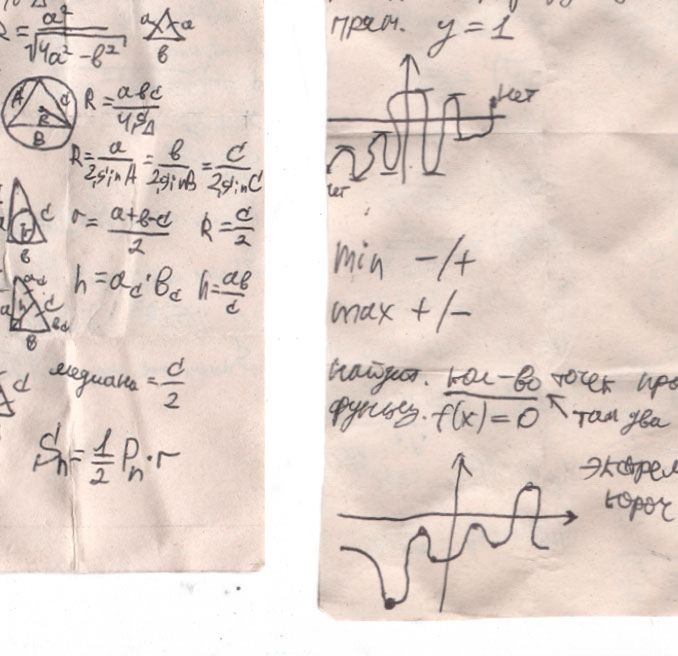 R = a² / √4a² - b²  a a b
A C R B  R = abc / 4S△
R = a / 2sinA = b / 2sinB = c / 2sinC
c b  r = a+b-c / 2  R = c / 2
a h b  h = a_c · b_c  h = ab / c
c  медиана = c / 2
Sₙ = 1/2 Pₙ · r
прям. y = 1
нет
нет
min -/+
max +/-
найдит. кол-во точек про
функц. f(x) = 0 там два
экстрем
короч